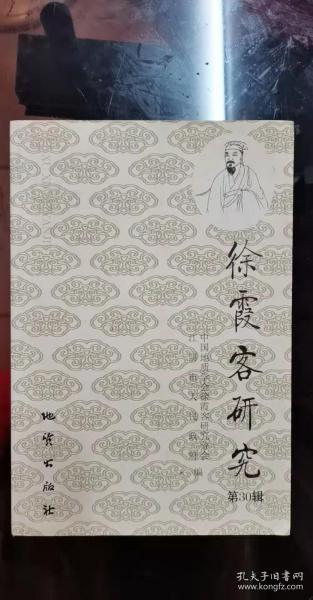 徐霞客研究
第30辑
中国地质学会徐霞客研究分会
江阴市人民政府 编
地质出版社
孔夫子旧书网